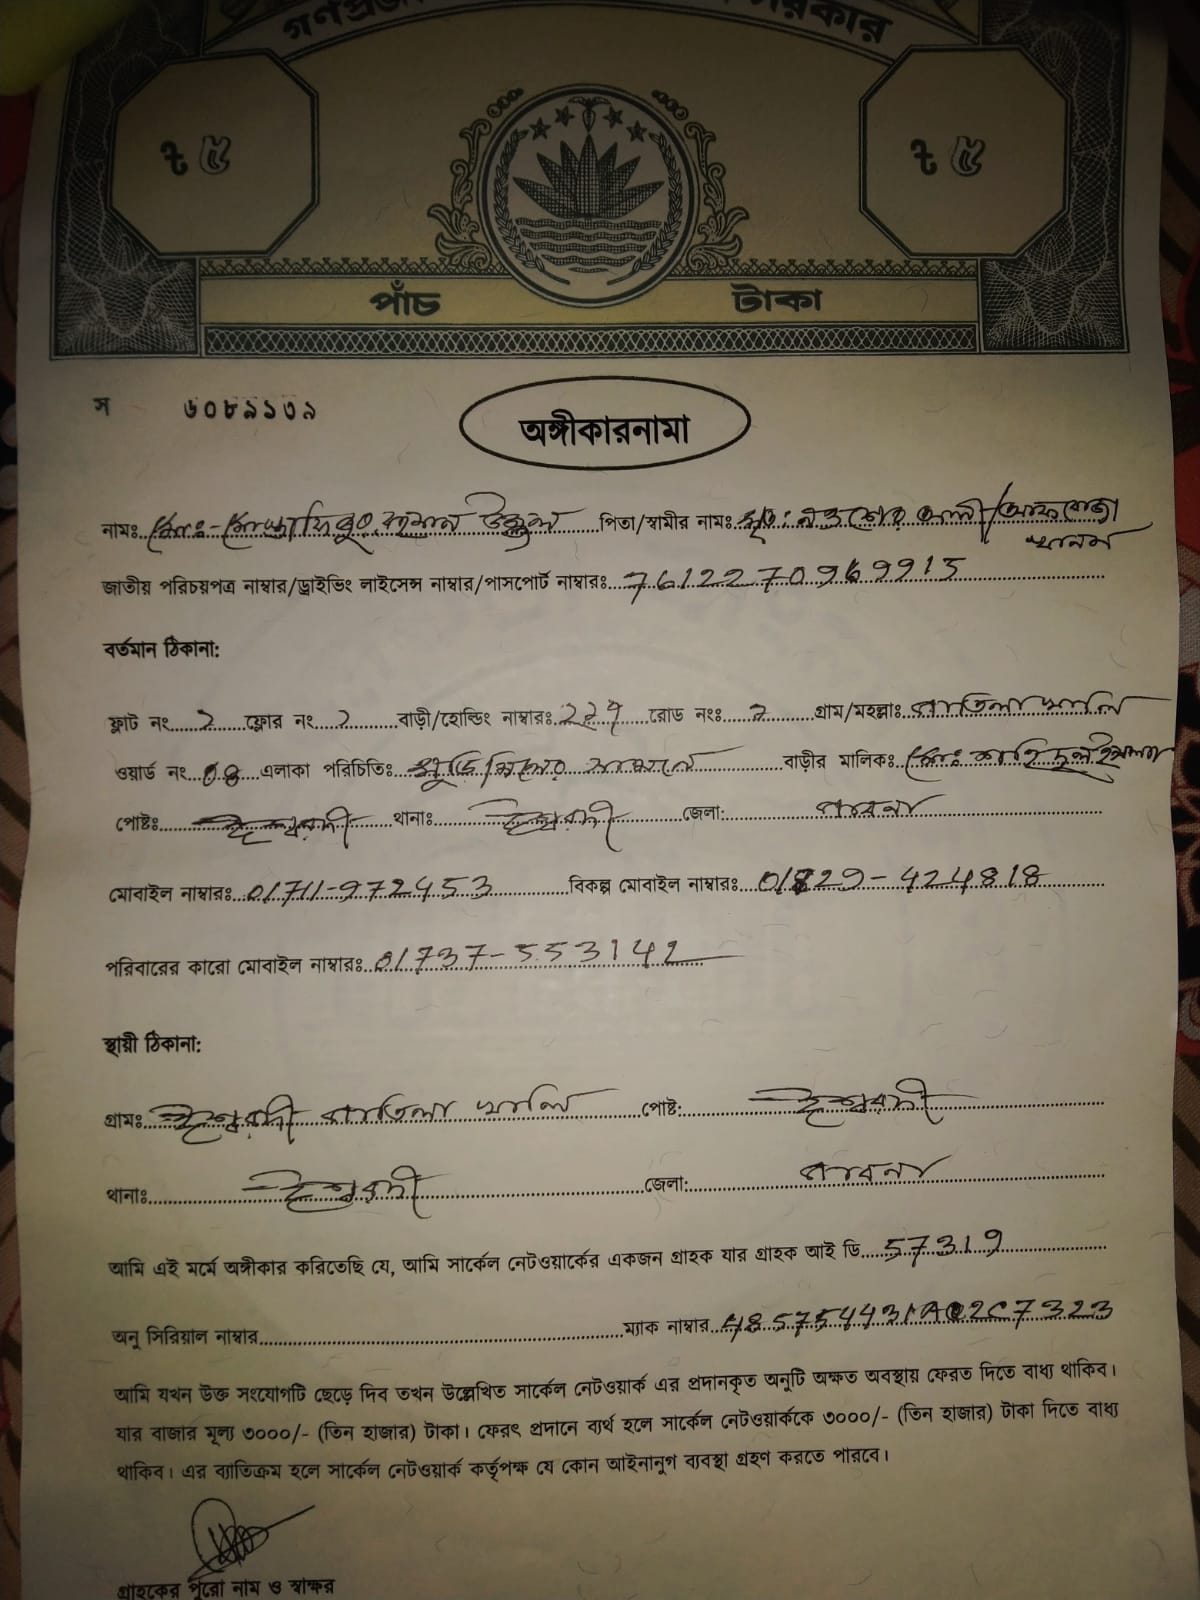 গণপ্রজা সরকার
৳ ৫ ৳ ৫
পাঁচ টাকা
স ৬০৮৯১৩৯
অঙ্গীকারনামা
নামঃ মোঃ- রহমান পিতা/স্বামীর নামঃ মৃতঃ আলী/আফরোজা
খানম
জাতীয় পরিচয়পত্র নাম্বার/ড্রাইভিং লাইসেন্স নাম্বার/পাসপোর্ট নাম্বারঃ 7612270969915
বর্তমান ঠিকানা:
ফ্লাট নং 2 ফ্লোর নং 2 বাড়ী/হোল্ডিং নাম্বারঃ রোড নংঃ 2 গ্রাম/মহল্লাঃ
ওয়ার্ড নং 08 এলাকা পরিচিতিঃ বাড়ীর মালিকঃ মোঃ
পোষ্টঃ ঈশ্বরদী থানাঃ ঈশ্বরদী জেলা: পাবনা
মোবাইল নাম্বারঃ 01711-972453 বিকল্প মোবাইল নাম্বারঃ 01729-424818
পরিবারের কারো মোবাইল নাম্বারঃ 01737-553142
স্থায়ী ঠিকানা:
গ্রামঃ ঈশ্বরদী পোষ্ট: ঈশ্বরদী
থানাঃ ঈশ্বরদী জেলা: পাবনা
আমি এই মর্মে অঙ্গীকার করিতেছি যে, আমি সার্কেল নেটওয়ার্কের একজন গ্রাহক যার গ্রাহক আই ডি 57319
অনু সিরিয়াল নাম্বার ম্যাক নাম্বার
আমি যখন উক্ত সংযোগটি ছেড়ে দিব তখন উল্লেখিত সার্কেল নেটওয়ার্ক এর প্রদানকৃত অনুটি অক্ষত অবস্থায় ফেরত দিতে বাধ্য থাকিব।
যার বাজার মূল্য ৩০০০/- (তিন হাজার) টাকা। ফেরৎ প্রদানে ব্যর্থ হলে সার্কেল নেটওয়ার্ককে ৩০০০/- (তিন হাজার) টাকা দিতে বাধ্য
থাকিব। এর ব্যতিক্রম হলে সার্কেল নেটওয়ার্ক কর্তৃপক্ষ যে কোন আইনানুগ ব্যবস্থা গ্রহণ করতে পারবে।
গ্রাহকের পুরো নাম ও স্বাক্ষর